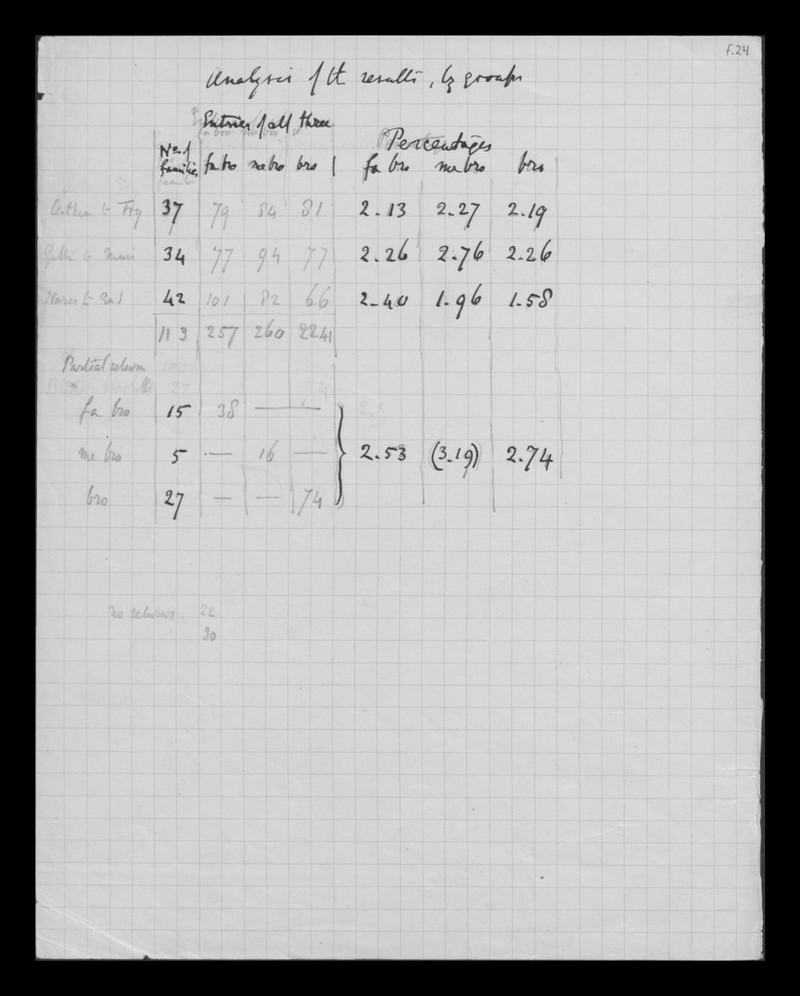 F.24
Analysis of the results, by groups
Entries of all three
Percentages
No. of families fa bro me bro bro fa bro me bro bro
to Fry 37 79 84 81 2.13 2.27 2.19
34 77 94 77 2.26 2.76 2.26
Nares to 42 101 82 66 2.40 1.96 1.58
113 257 260 224
Partial return
fa bro 15 38 — —
me bro 5 — 16 — 2.53 (3.19) 2.74
bro 27 — — 74
no returns 22
30